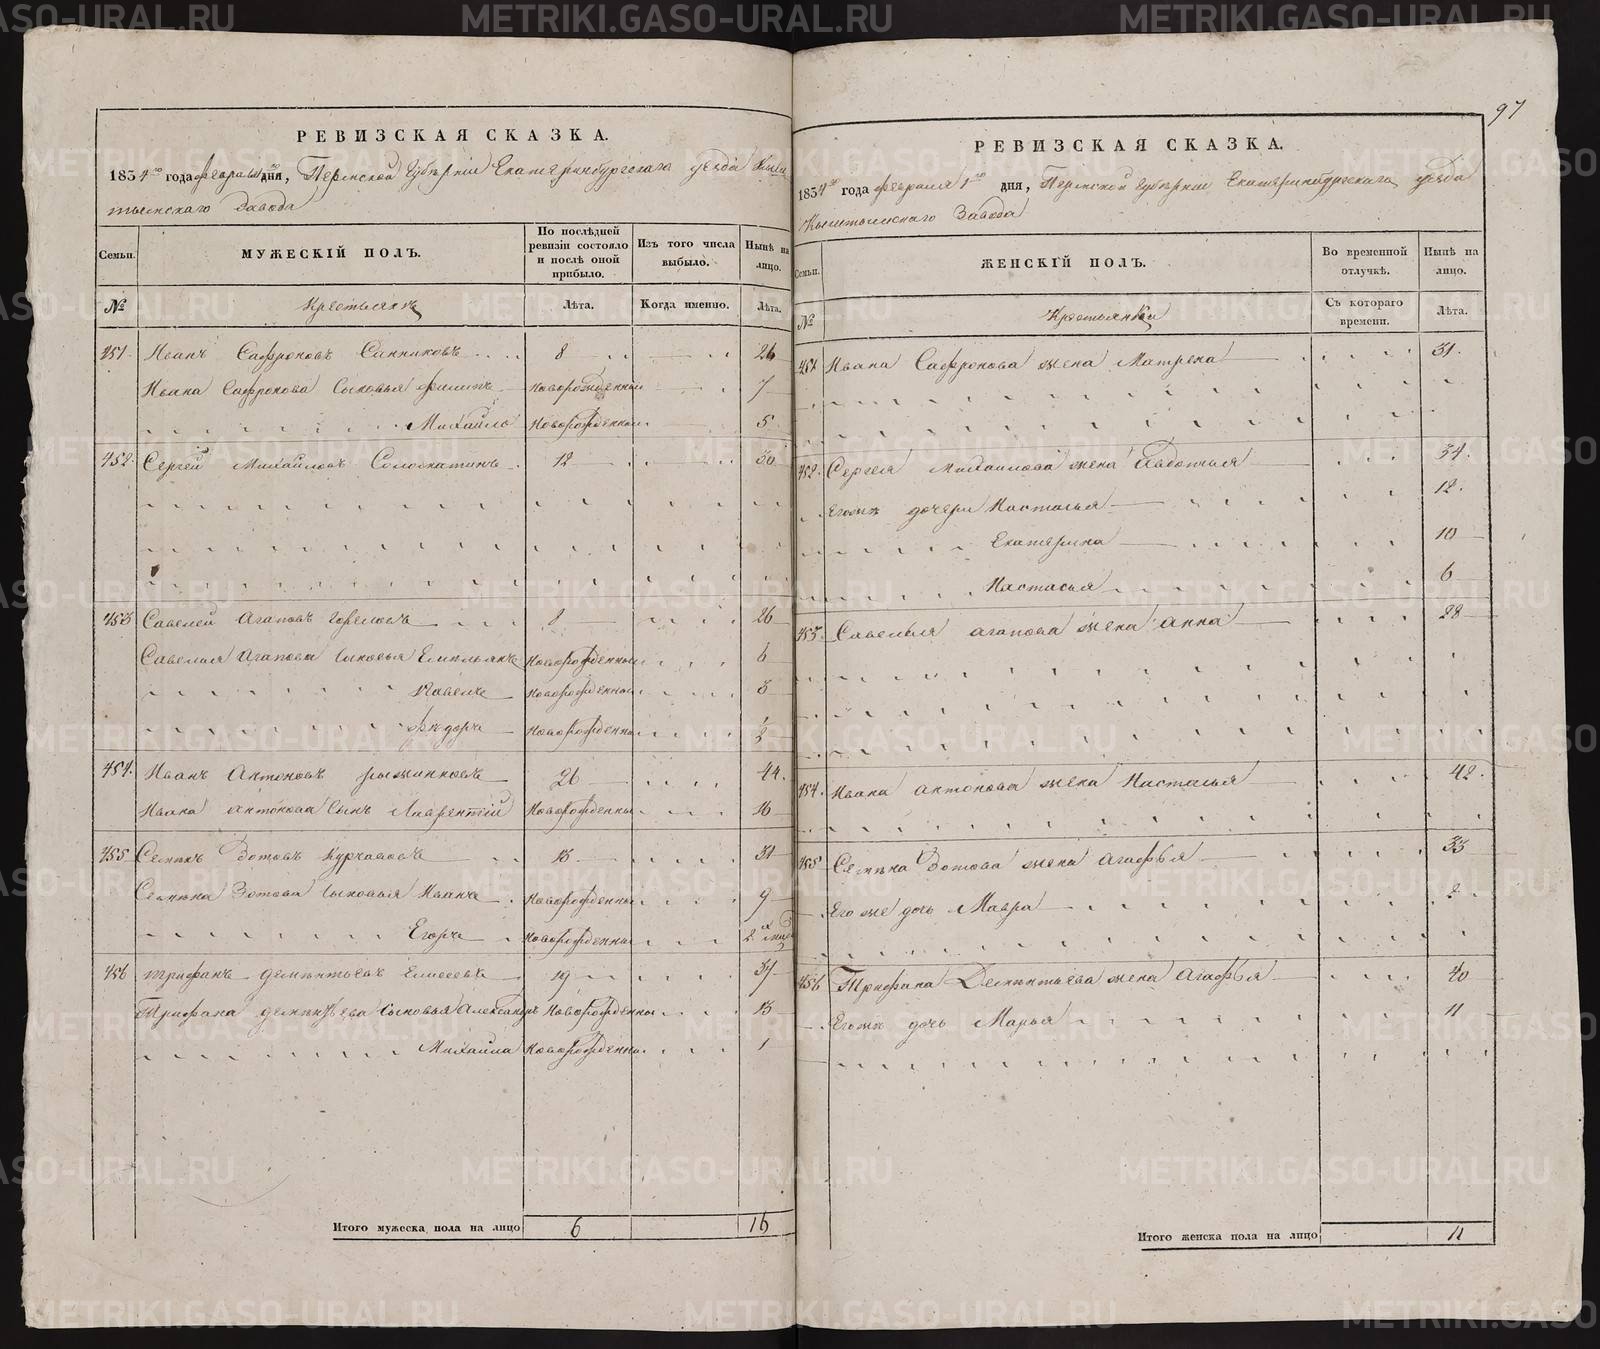 97
РЕВИЗСКАЯ СКАЗКА.
1834го года февраля 1го дня, Пермской Губерніи Екатеринбургскаго уезда Кыш
тымскаго Завода
Семьи. МУЖЕСКІЙ ПОЛЪ. По послѣдней ревизіи состояло и послѣ оной прибыло. Изъ того числа выбыло. Нынѣ на лицо.
№ Крестьянъ Лѣта. Когда именно. Лѣта.
451. Иванъ Сафроновъ Санниковъ 8 26
Ивана Сафронова Сыновья Филипъ новорожденный 7
Михайло новорожденный 5
452. Сергей Михайловъ Солоскатинъ 12 30
453 Савелей Агаповъ Гореловъ 8 26
Савелья Агапова Сыновья Емельянъ новорожденный 6
Павелъ новорожденный 3
Федоръ новорожденный
454. Иванъ Антоновъ рыжинковъ 26 44.
Ивана Антонова Сынъ Лаврентій новорожденный 16
455 Семенъ Зотовъ Курчавовъ 13 31
Семена Зотова Сыновья Иванъ новорожденный 9
Егоръ новорожденный 2
456 Трифанъ Дементьевъ Елисеевъ 19 37
Трифана Дементьева Сыновья Александръ новорожденный 13
Михаила новорожденный 1
Итого мужеска пола на лицо 6 16
РЕВИЗСКАЯ СКАЗКА.
1834го года февраля 1го дня, Пермской Губерніи Екатеринбургскаго уезда
Кыштымскаго Завода
Семьи. ЖЕНСКІЙ ПОЛЪ. Во временной отлучкѣ. Нынѣ на лицо.
№ Крестьянки Съ котораго времени. Лѣта.
451 Ивана Сафронова жена Матрена 31.
452. Сергея Михаилова жена Авдотья 34.
Егожъ дочери Настасья 12.
Екатерина 10
Настасья 6
453. Савелья Агапова жена Анна 28
454. Ивана Антонова жена Настасья 42.
455 Семена Зотова жена Агафья 33
Его же дочь Мавра 2
456 Трифана Дементьева жена Агафья 40
Егожъ дочь Марья 11
Итого женска пола на лицо 11
METRIKI.GASO-URAL.RU